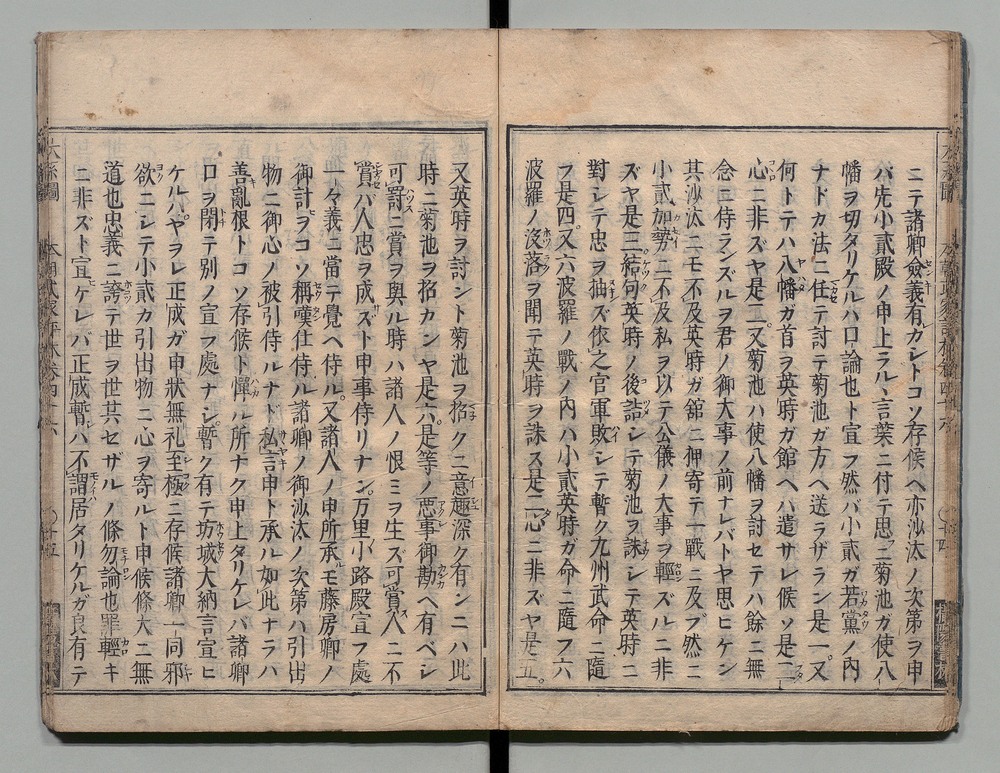 ニテ諸卿僉義有ガレトコソ存候ヘ亦沙汰ノ次第ヲ申
バ先小貳殿ノ申上ラル丶言葉ニ付テ思ニ菊池ガ使八
幡ヲ切タリケルハ口論也ト宣フ然バ小貳ガ若黨ノ内
ナドカ法ニ任テ討テ菊池ガ方ヘ送ラザラン是一又
何トテハ八幡ガ首ヲ英時ガ館ヘハ遣サレ候ソ是二
心ニ非ズヤ是二又菊池ハ使八幡ヲ討セテハ餘ニ無
念ニ侍ランズルヲ君ノ御大事ノ前ナレバトヤ思ヒケン
其沙汰ニモ不及英時ガ舘ニ押寄テ一戰ニ及ブ然ニ
小貳加勢ニ不及私ヲ以テ公儀ノ大事ヲ輕ズルニ非
ズヤ是三結句英時ノ後詰シテ菊池ヲ誅シテ英時ニ
對シテ忠ヲ抽ズ依之官軍敗シテ暫ク九州武命ニ隨
フ是四又六波羅ノ戰ノ内ハ小貳英時ガ命ニ隨フ六
波羅ノ沒落ヲ聞テ英時ヲ誅ス是二心ニ非ズヤ是五
又英時ヲ討ント菊池ヲ招クニ意趣深ク有ンニハ此
時ニ菊池ヲ招カンヤ是六是等ノ惡事御勘ヘ有ベシ
可罸ニ賞ヲ與ル時ハ諸人ノ恨ミヲ生ズ可賞人ニ不
賞バ人忠ヲ成ズト申事侍リナン万里小路殿宣フ處
一々義ニ當テ覺ヘ侍ル又諸人ノ申所承モ藤房卿ノ
御計ヲコソ稱嘆仕侍ル諸卿ノ御沙汰ノ次第ハ引出
物ニ御心ノ被引侍ルナド私言申ト承ル如此ナラハ
善亂根トコソ存候ト憚ル所ナク申上タリケレバ諸卿
口ヲ閉テ別ノ宣フ處ナシ暫ク有テ坊城大納言宣ヒ
ケルハヤヲレ正成ガ申状無礼至極ニ存候諸卿一同邪
欲ニシテ小貳カ引出物ニ心ヲ寄ルト申候條大ニ無
道也忠義ニ誇テ世ヲ世共セザルノ條勿論也罪輕キ
ニ非ズト宣ケレバ正成暫バ不謂居タリケルガ良有テ